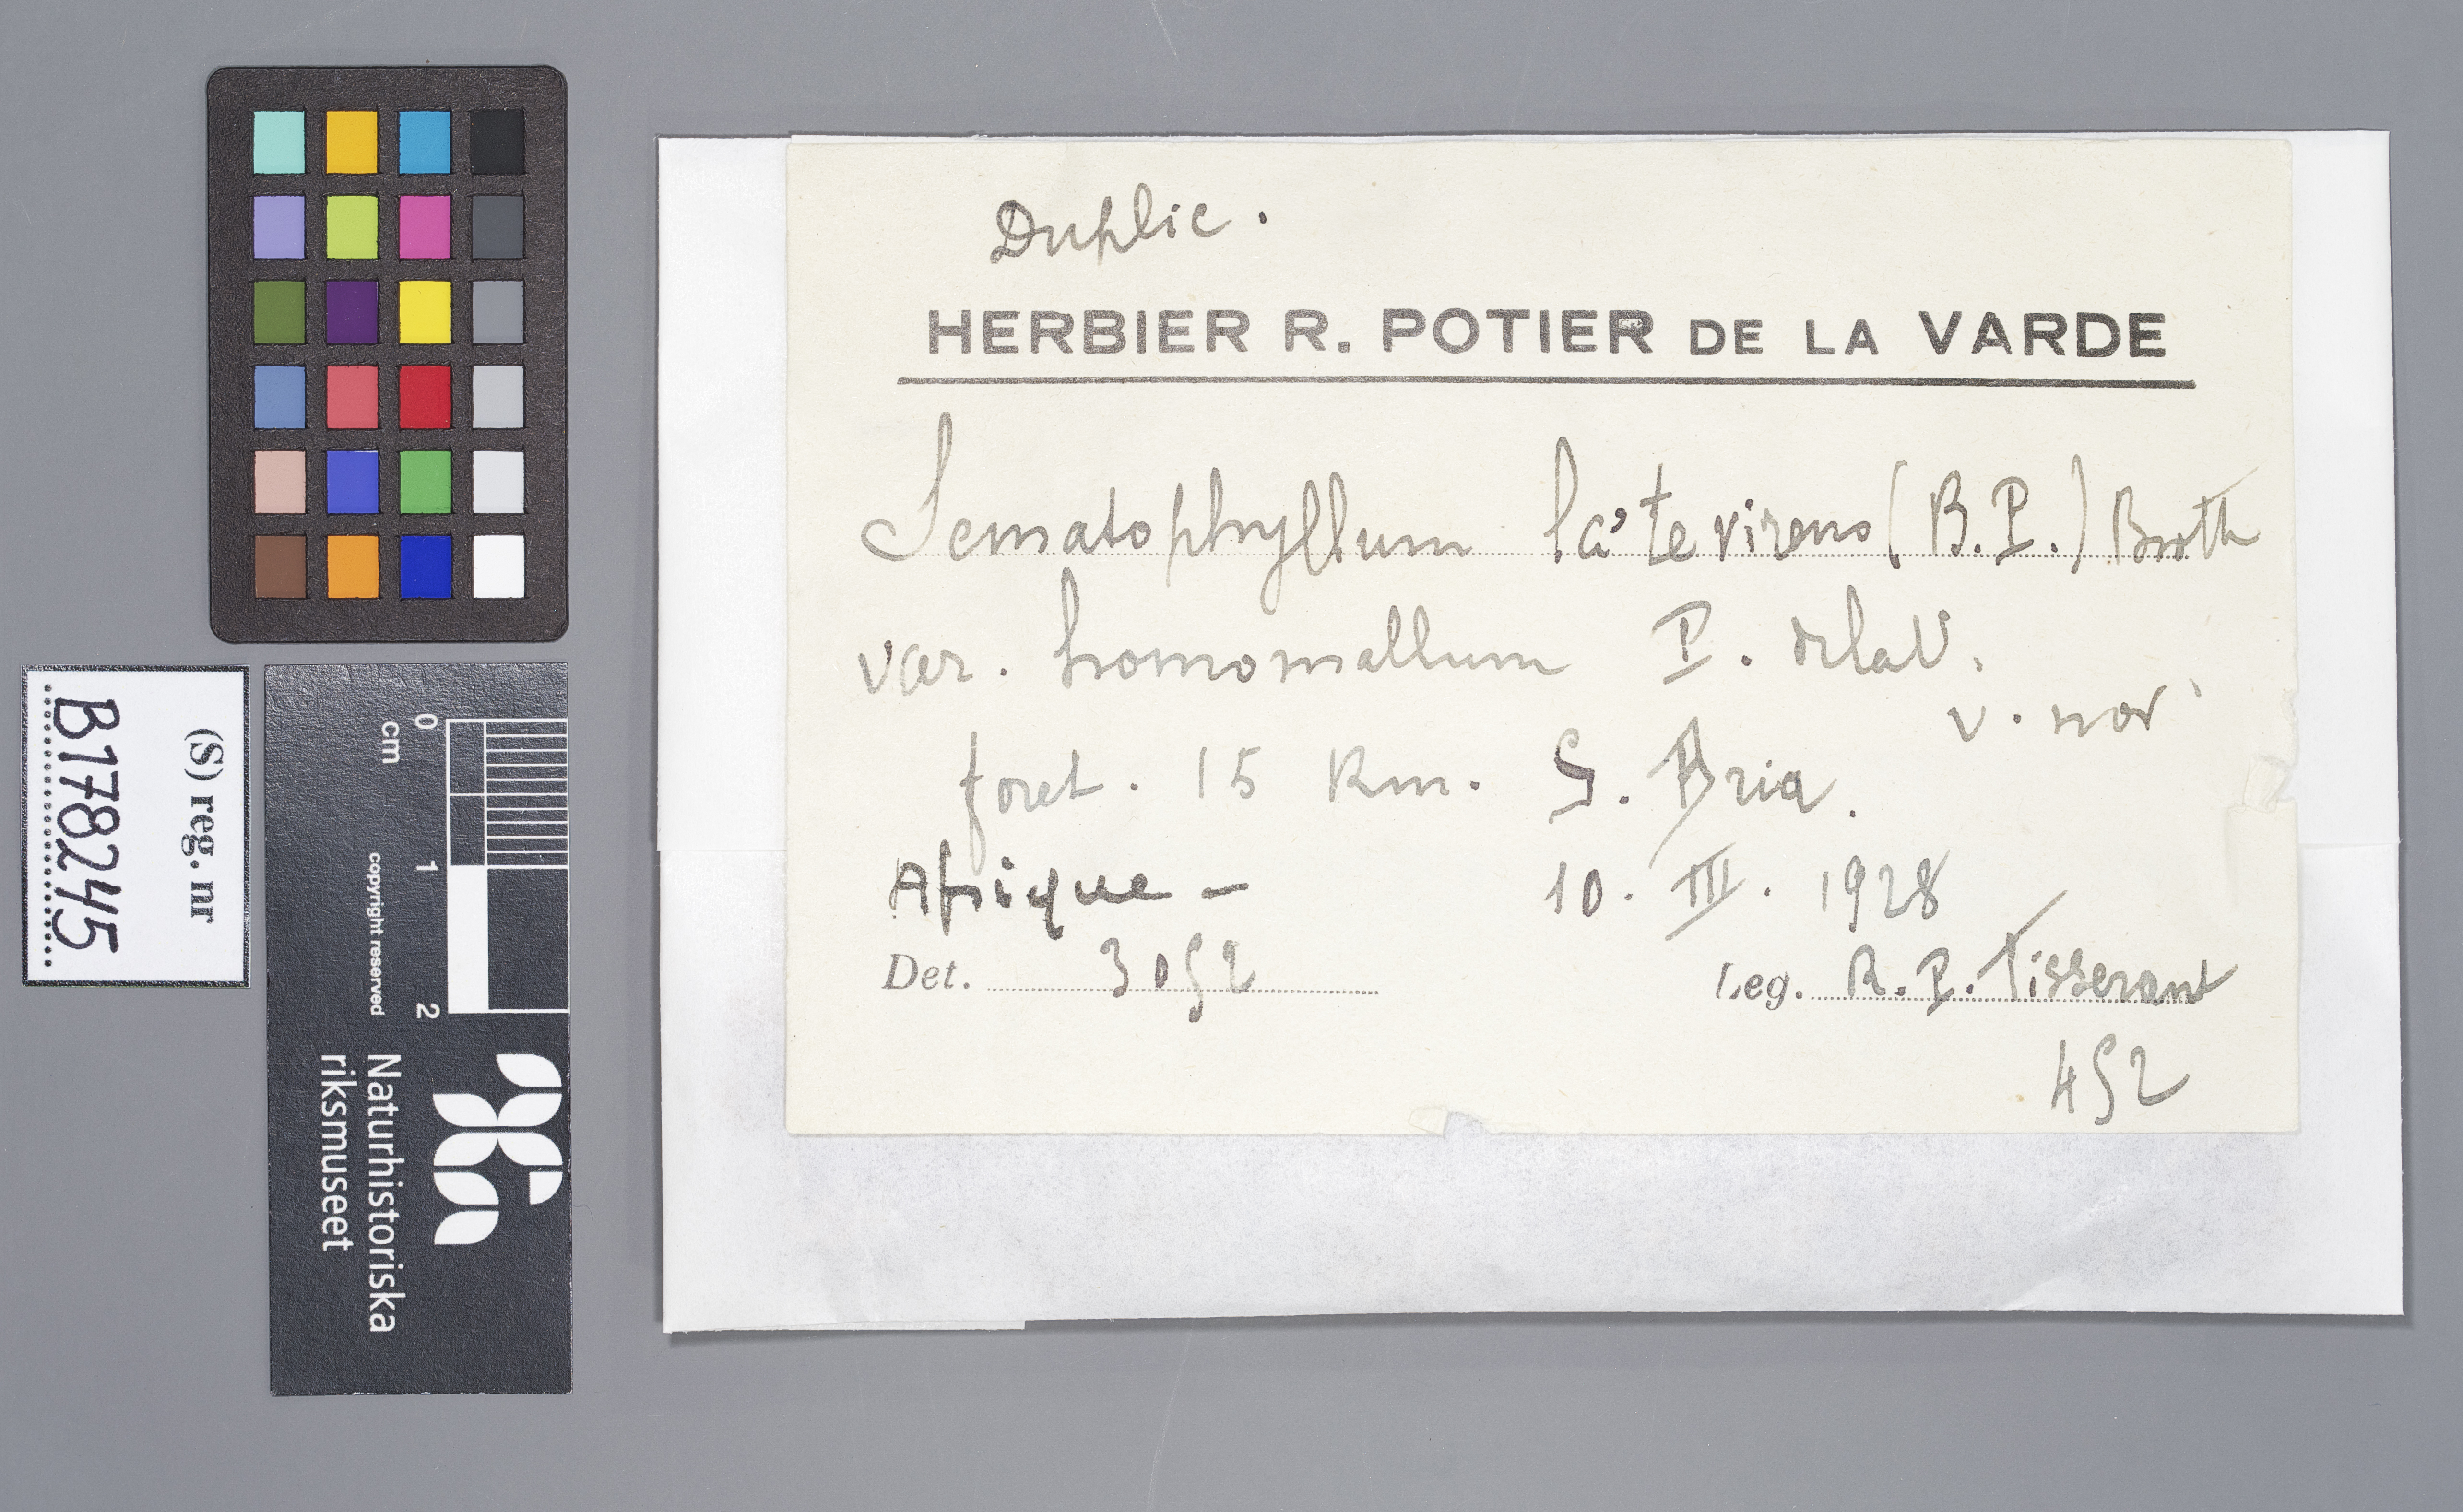 Duplic.
HERBIER R. POTIER DE LA VARDE
Sematophyllum la'te virens (B.P.) Broth
var. homomallum P. de la V.
v. nov
foret. 15 Km. S. Bria.
Afrique - 10. III. 1928
Det. 3052 Leg. R. P. Tisserant
452
(S) reg. nr
B178245
0
cm
1
2
copyright reserved
Naturhistoriska
riksmuseet